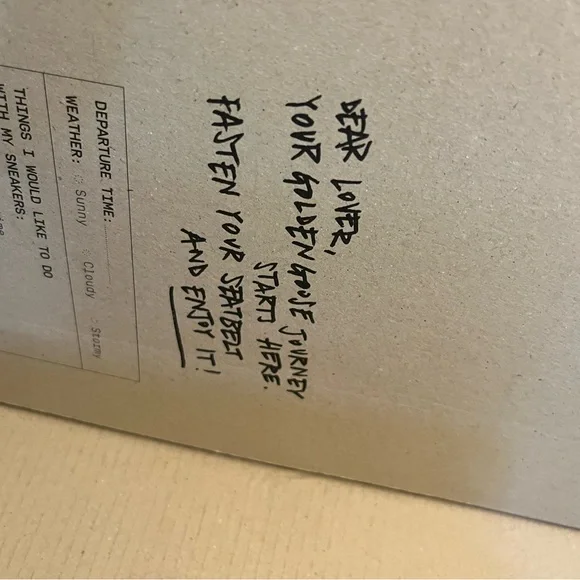 DEAR LOVER,
YOUR GOLDEN GOOSE JOURNEY
STARTS HERE.
FASTEN YOUR SEATBELT
AND ENJOY IT!
DEPARTURE TIME:
WEATHER: Sunny Cloudy Stormy
THINGS I WOULD LIKE TO DO
WITH MY SNEAKERS: